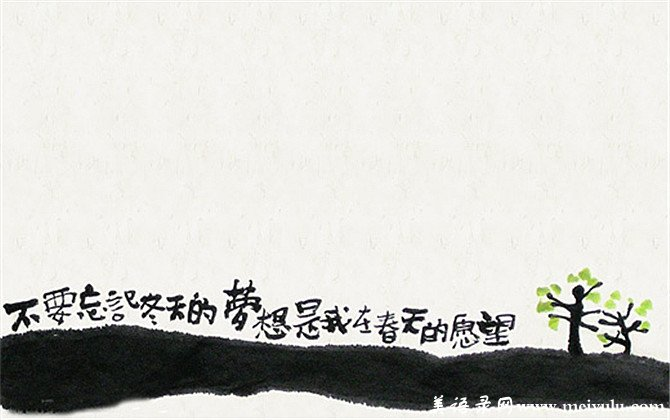 不要忘記冬天的夢想是我在春天的愿望
美语录网www.meiyulu.com